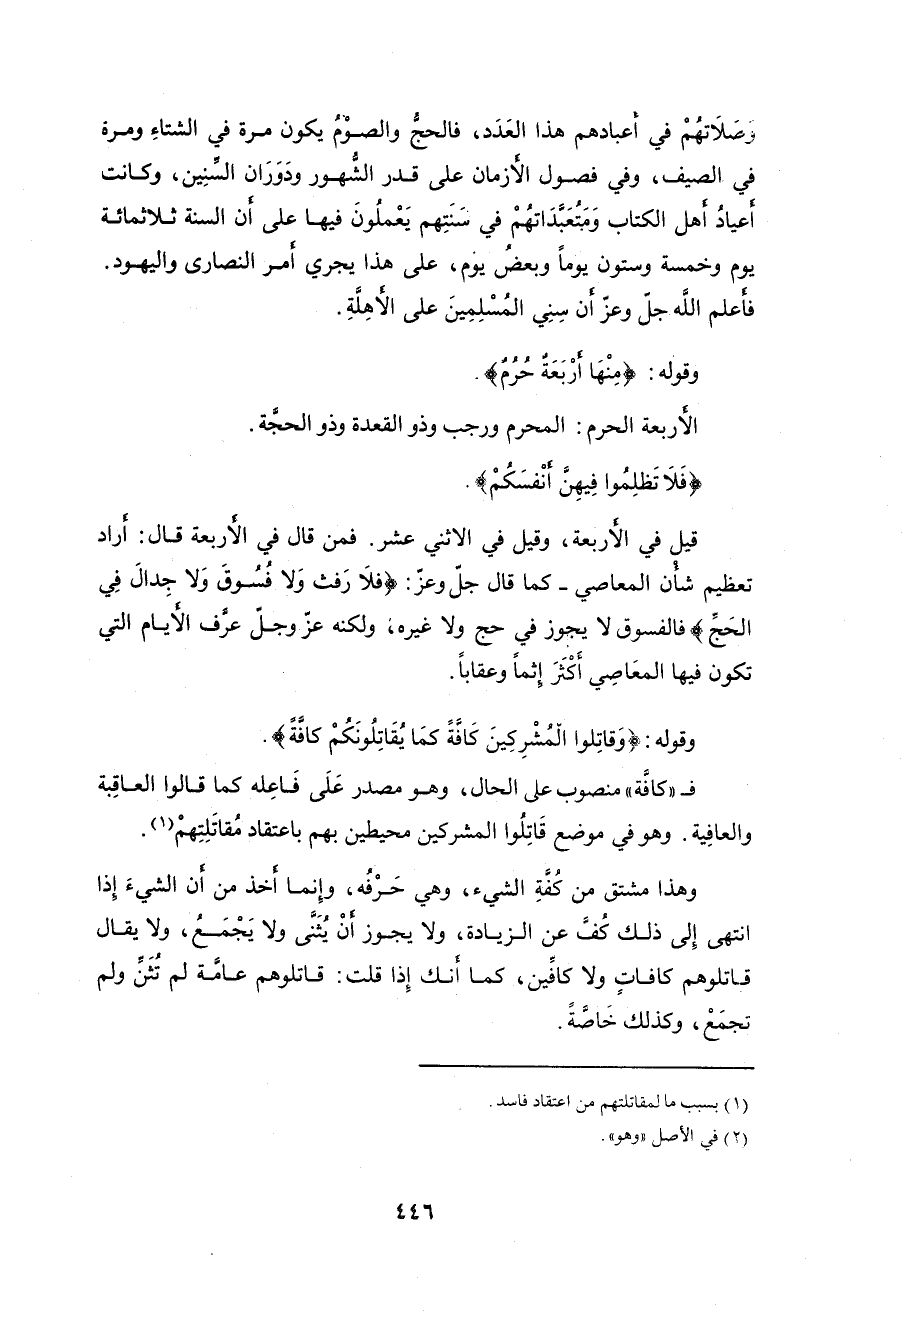 وَصَلَاتهُمْ في أَعيادهم هذا العَدَد، فالحجُّ والصوْمُ يكون مرة في الشتاءِ ومرة
في الصيف، وفي فصول الأَزمان على قدر الشُّهور ودَوَرَان السِّنِين، وكانت
أَعيادُ أَهل الكتاب وَمَتَعَبَّدَاتهُمْ في سَنَتِهم يَعْملُونَ فيها على أَن السنة ثلاثمائة
يوم وخمسة وستون يوماً وبعضُ يوْم، على هذا يجري أَمر النصارى واليهود.
فأَعلم اللَّه جلّ وعزّ أَن سِنِي المُسْلِمِينَ على الأَهِلَّةِ.
وقوله: ﴿مِنْهَا أَرْبَعَةٌ حُرُمٌ﴾.
الأَربعة الحرم: المحرم ورجب وذو القعدة وذو الحجَّة.
﴿فَلَا تَظلِمُوا فِيهِنَّ أَنْفسَكُمْ﴾.
قيل في الأَربعة، وقيل في الاثني عشر. فمن قال في الأَربعة قال: أَراد
تعظيم شأْن المعاصي ـ كما قال جلّ وعزّ: ﴿فلَا رَفث وَلا فُسُوقَ وَلا جِدالَ فِي
الحَجِّ﴾ فالفسوق لا يجوز في حج ولا غيره، ولكنه عزّ وجلّ عرَّف الأَيام التي
تكون فيها المعَاصِي أَكْثَرَ إِثماً وعقاباً.
وقوله: ﴿وَقاتِلوا الْمُشْرِكِينَ كَافَّةً كمَا يُقَاتِلُونَكُمْ كافَّةً﴾.
فـ «كافَّة» منصوب على الحال، وهو مصدر عَلَى فَاعِله كما قالوا العاقِبة
والعافِية. وهو في موضع قَاتِلُوا المشركين محيطين بهم باعتقاد مُقاتَلِتِهمْ(١).
وهذا مشتق من كُفَّةِ الشيء، وهي حَرْفُه، وإنما أَخذ من أَن الشيءَ إِذا
انتهى إِلى ذلك كُفَّ عن الزيادة، ولا يجوز أَنْ يُثَنَّى ولا يَجْمَعُ، ولا يقال
قاتلوهم كافاتٍ ولا كافِّين، كما أَنك إِذا قلت: قاتلوهم عامَّة لم تُثَنِّ ولم
تجمَعْ، وكذلك خَاصَّةً.
(١) بسبب ما لمقاتلتهم من اعتقاد فاسد.
(٢) في الأصل «وهو».
٤٤٦